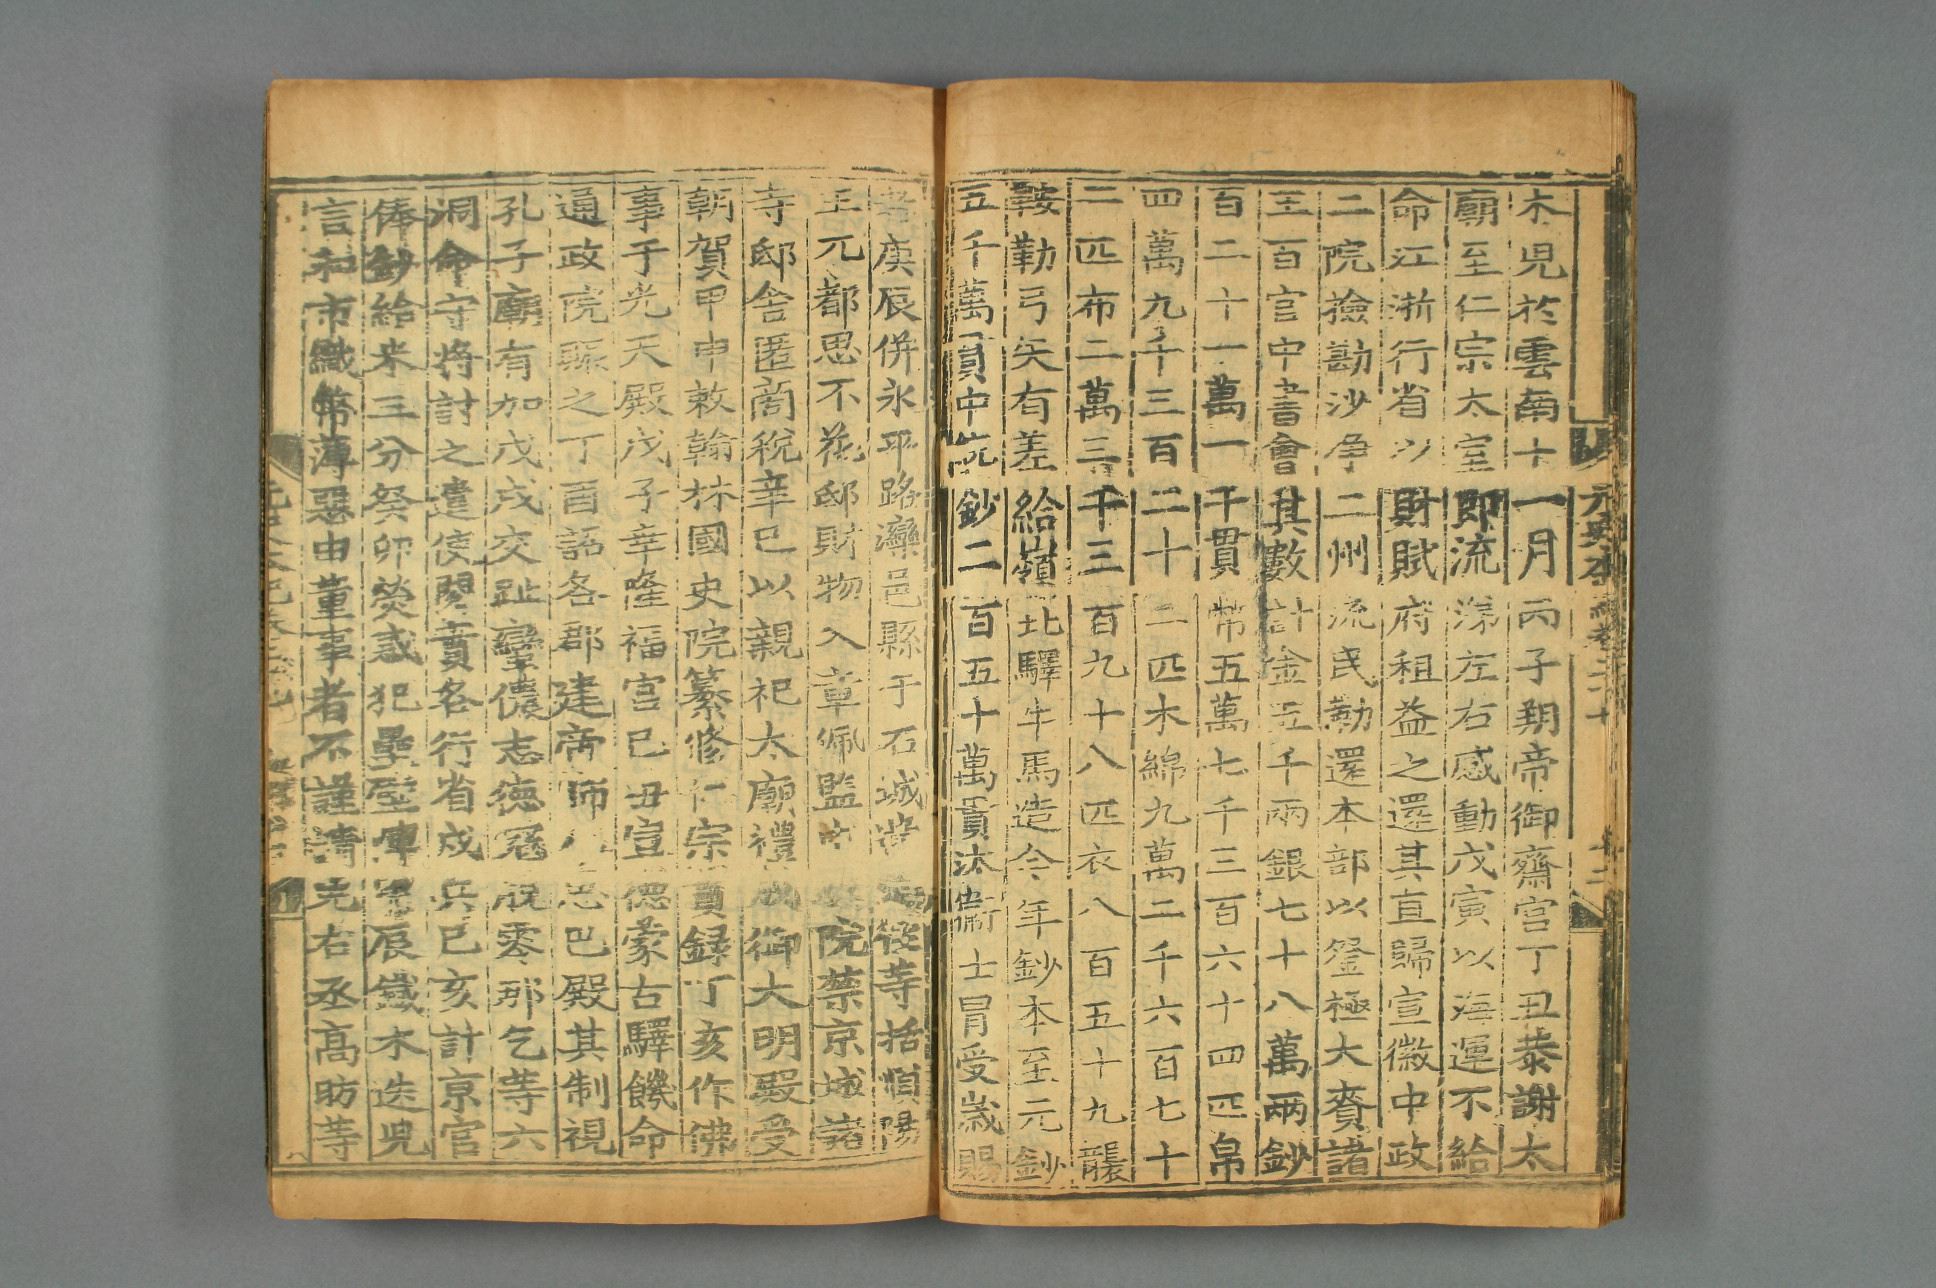 木兒於雲南十一月丙子朔帝御齋宮丁丑恭謝太
廟至仁宗太室即流涕左右感動戊寅以海運不給
命江浙行省以財賦府租益之還其直歸宣徽中政
二院撿勘沙淨二州流民勒還本部以登極大賚諸
王百官中書會其數計金五千兩銀七十八萬兩鈔
百二十一萬一千貫幣五萬七千三百六十四匹帛
四萬九千三百二十二匹木綿九萬二千六百七十
二匹布二萬三千三百九十八匹衣八百五十九襲
鞍勒弓矢有差給嶺北驛牛馬造今年鈔本至元鈔
五千萬貫中統鈔二百五十萬貫汰衛士冒受歲賜
者庚辰併永平路灤邑縣于石城
寺括順陽
王兀都思不花邸財物入章佩監中
院禁京城諸
寺邸舍匿商稅辛巳以親祀太廟禮成御大明殿受
朝賀甲申敕翰林國史院纂修仁宗實録丁亥作佛
事于光天殿戊子幸隆福宮己丑宣德蒙古驛饑命
通政院賑之丁酉詔各郡建帝師八思巴殿其制視
孔子廟有加戊戌交趾蠻儂志德寇脫零那乞等六
洞命守將討之遣使閱實各行省戍兵己亥計京官
俸鈔給米三分癸卯熒惑犯壘壁陣
辰鐵木迭兒
言和市織幣薄惡由董事者不謹請
右丞高昉等